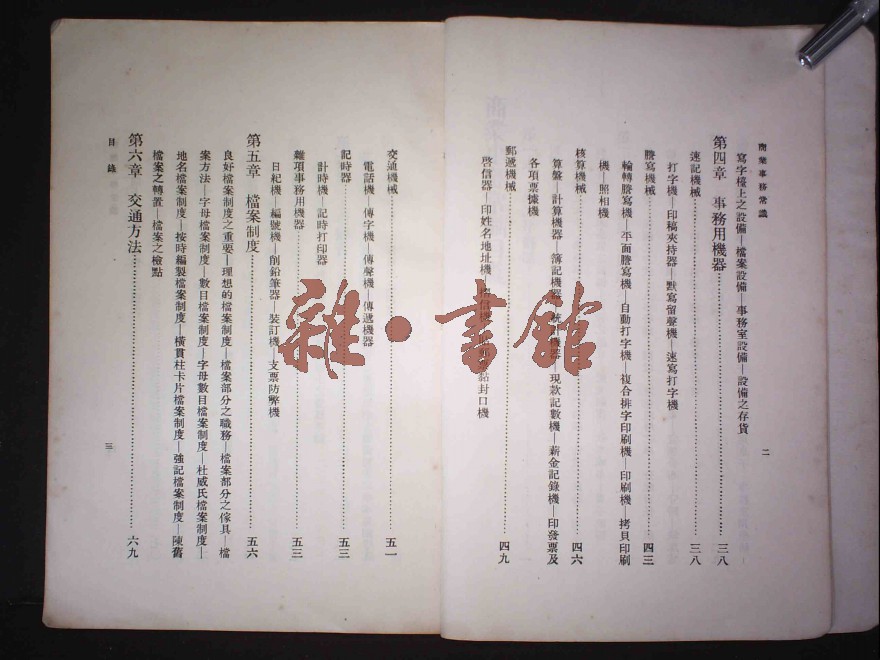 商業事務常識
二
寫字檯上之設備—檔案設備—事務室設備—設備之存貨
第四章 事務用機器……三八
速記機械……三八
打字機—印稿夾持器—默寫留聲機—速寫打字機
謄寫機械……四三
輪轉謄寫機—平面謄寫機—自動打字機—複合排字印刷機—印刷機—拷貝印刷
機—照相機
核算機械……四六
算盤—計算機器—簿記機器—機器—現款記數機—薪金記錄機—印發票及
各項票據機
郵遞機械……四九
啓信器—印姓名地址機—黏封口機
交通機械……五一
電話機—傳字機—傳聲機—傳遞機器
記時器……五三
計時機—記時打印器
雜項事務用機器……五三
日紀機—編號機—削鉛筆器—裝訂機—支票防弊機
第五章 檔案制度……五六
良好檔案制度之重要—理想的檔案制度—檔案部分之職務—檔案部分之傢具—檔
案方法—字母檔案制度—數目檔案制度—字母數目檔案制度—杜威氏檔案制度—
地名檔案制度—按時編製檔案制度—橫貫柱卡片檔案制度—強記檔案制度—陳舊
檔案之轉置—檔案之檢點
第六章 交通方法……六九
目錄
三
雜·書館